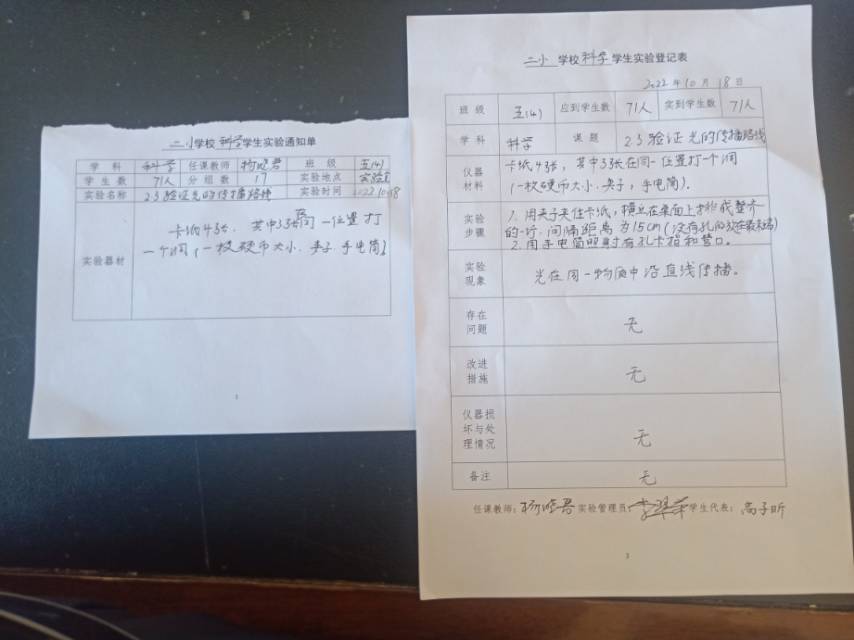 二小学校科学学生实验通知单
学 科 科学 任课教师 杨晓君 班 级 五(4)
学 生 数 71人 分 组 数 17 实验地点 实验室
实验名称 2.3验证光的传播路线 实验时间 2022.10.18
实验器材
卡纸4张,其中3张同一位置打
一个洞(一枚硬币大小.夹子.手电筒)
1
二小 学校 科学 学生实验登记表
2022 年 10 月 18 日
班 级 五(4) 应到学生数 71人 实到学生数 71人
学 科 科学 课 题 2.3验证光的传播路线
仪器
材料
卡纸4张,其中3张在同一位置打一个洞
(一枚硬币大小.夹子,手电筒).
实验
步骤
1.用夹子夹住卡纸,横立在桌面上才排成整齐
的一行.间隔距离为15cm(没有孔的放在最末端)
2.用手电筒照射有孔卡
实验
现象
光在同一物质中沿直线传播。
存在
问题
无
改进
措施
无
仪器损
坏与处
理情况
无
备注
无
任课教师:杨晓君 实验管理员: 学生代表:高子昕
3